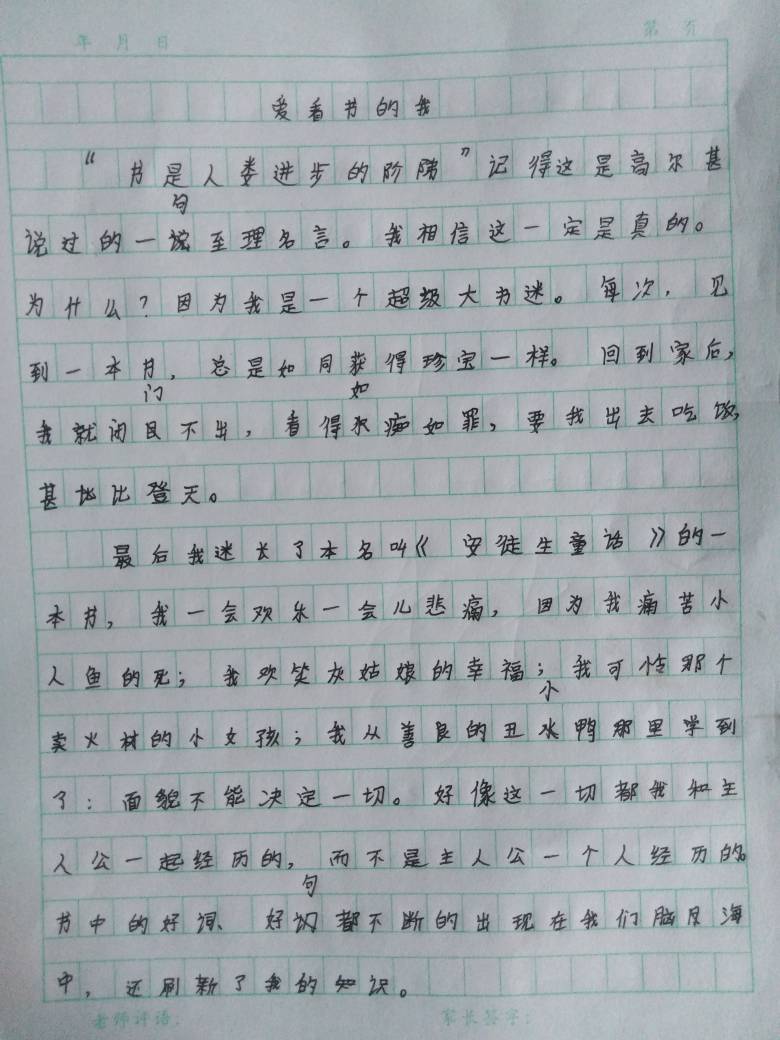 年 月 日 第 页
爱看书的我
“书是人类进步的阶梯”记得这是高尔甚
句
说过的一说至理名言。我相信这一定是真的。
为什么？因为我是一个超级大书迷。每次，见
到一本书，总是如同获得珍宝一样。回到家后，
门 如
我就闭足不出，看得水痴如罪，要我出去吃饭，
甚比登天。
最后我迷长了本名叫《安徒生童话》的一
本书，我一会欢乐一会儿悲痛，因为我痛苦小
人鱼的死；我欢笑灰姑娘的幸福；我可怜那个
小
卖火材的小女孩；我从善良的丑水鸭那里学到
了：面貌不能决定一切。好像这一切都我和主
人公一起经历的，而不是主人公一个人经历的。
句
书中的好词、好都不断的出现在我们脑反海
中，还刷新了我的知识。
老师评语： 家长签字：